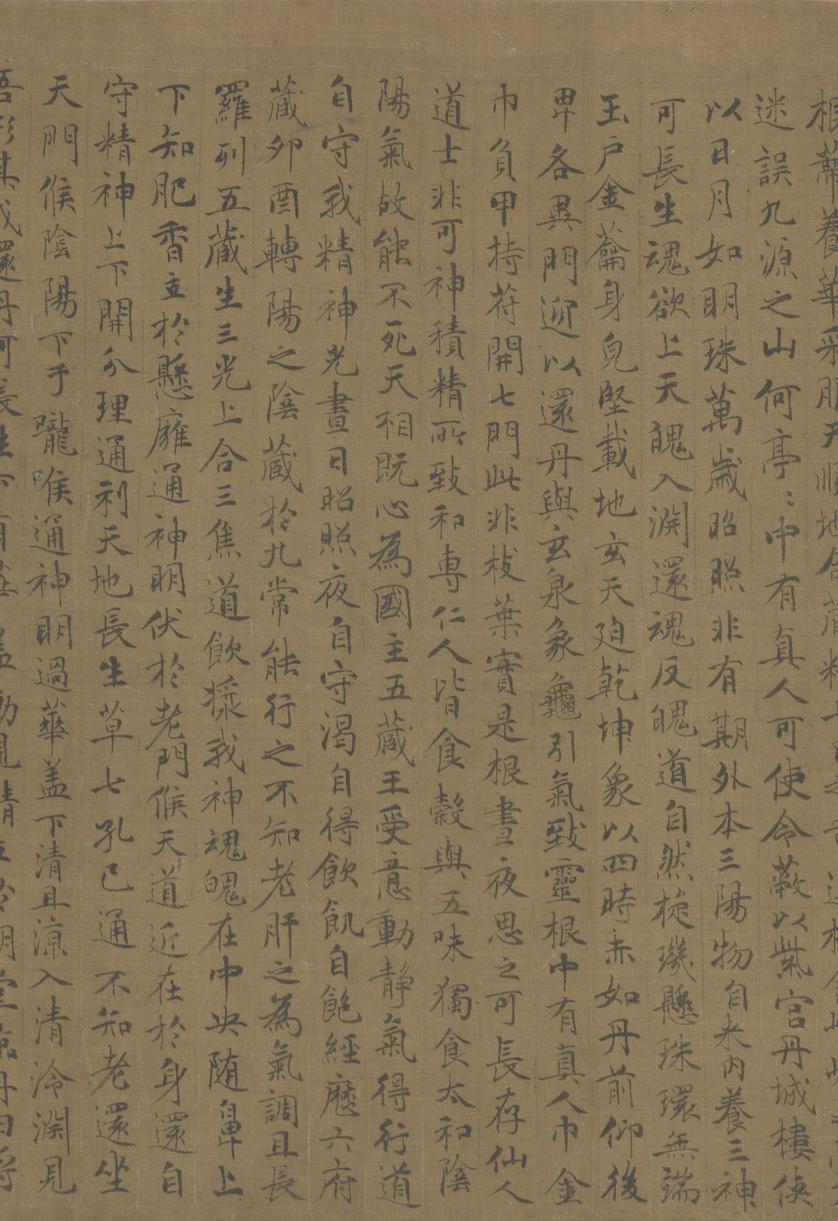 根葉養華采服天順地合蔵精
迷誤九源之山何亭〻中有真人可使令蔽以紫宮丹城樓俠
以日月如明珠萬歲昭照非有期外本三陽物自来内養三神
可長生魂欲上天魄入淵還魂反魄道自然璇璣懸珠環無端
玉戶金蘥身皃堅載地玄天迫乾坤象以四時赤如丹前仰後
卑各異門迎以還丹與玄泉象龜引氣致靈根中有真人巾金
巾負甲持苻開七門此非枝葉實是根晝夜思之可長存仙人
道士非可神積精所致和專仁人皆食穀與五味獨食太和陰
陽氣故能不死天相既心為國主五蔵王受意動静氣得行道
自守我精神光晝日昭照夜自守渴自得飲飢自飽經歷六府
蔵卯酉轉陽之陰蔵於九常能行之不知老肝之為氣調且長
羅列五蔵生三光上合三焦道飲漿我神魂魄在中央随鼻上
下知肥香立於懸膺通神明伏於老門候天道近在於身還自
守精神上下開分理通利天地長生草七孔已通不知老還坐
天門候陰陽下于嚨喉通神明過華盖下清且涼入清泠淵見
吾形其成還丹可長生